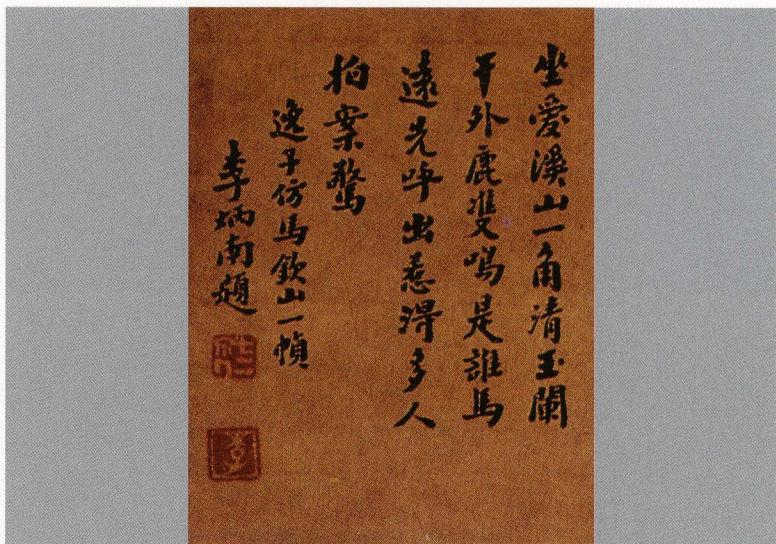 坐愛溪山一角清玉闌
干外鹿雙鳴是誰馬
遠先呼出惹得多人
拍案驚
逸子仿馬欽山一幀
李炳南題